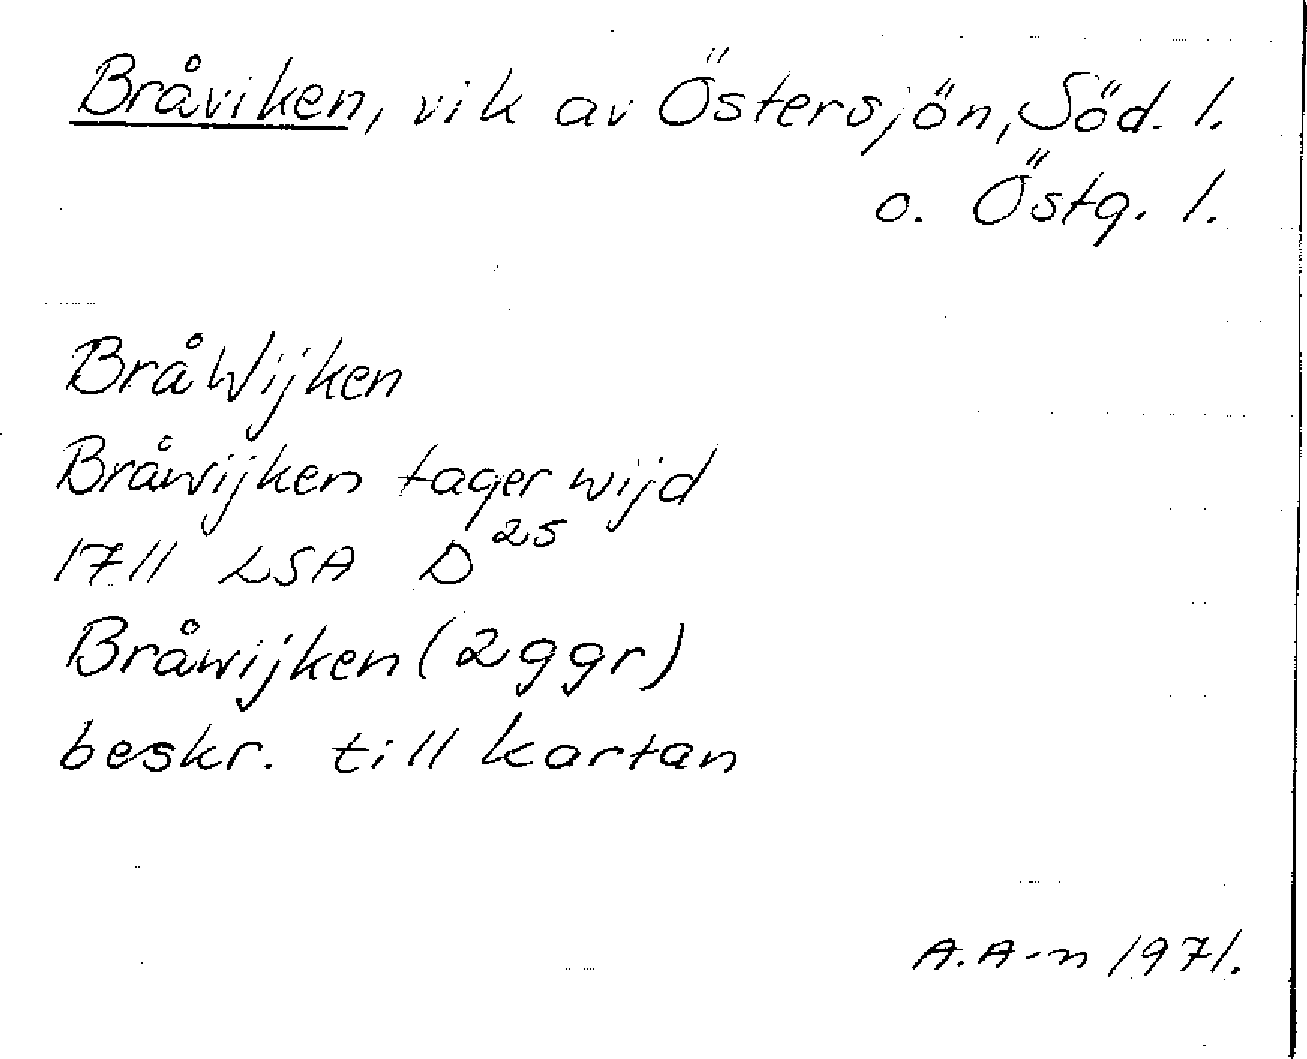 Bråviken, vik av Östersjön, Söd. l.
o. Östg. l.
BråWijken
Bråwijken tager wijd
1711 LSA D 25
Bråwijken (2 ggr)
beskr. till kartan
A. A-n 1971.